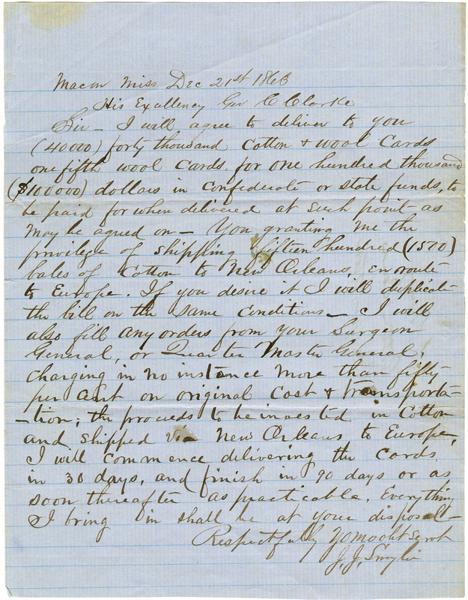 Macon Miss Dec 21st 1863
His Excellency Gov C Clarke
Sir - I will agree to deliver to you
(40000) forty thousand Cotton & wool Cards
one fifth wool Cards, for one hundred thousand
($100000) dollars in Confederate or State funds, to
be paid for when delivered at such point as
may be agreed on - You granting me the
privilege of shipping fifteen hundred (1500)
bales of Cotton to New Orleans, en route
to Europe. If you desire it I will duplicate
the bill on the same Conditions - I will
also fill any orders from your Surgeon
General, or Quarter Master General,
Charging in no instance more than fifty
per cent on original Cost & transporta-
-tion; the proceeds to be invested in Cotton
and shipped via New Orleans to Europe,
I will commence delivering the Cards
in 30 days, and finish in 90 days or as
soon thereafter as practicable. Everything
I bring in shall be at your disposal
Respectfully Yo mo obt Servt
J. J.